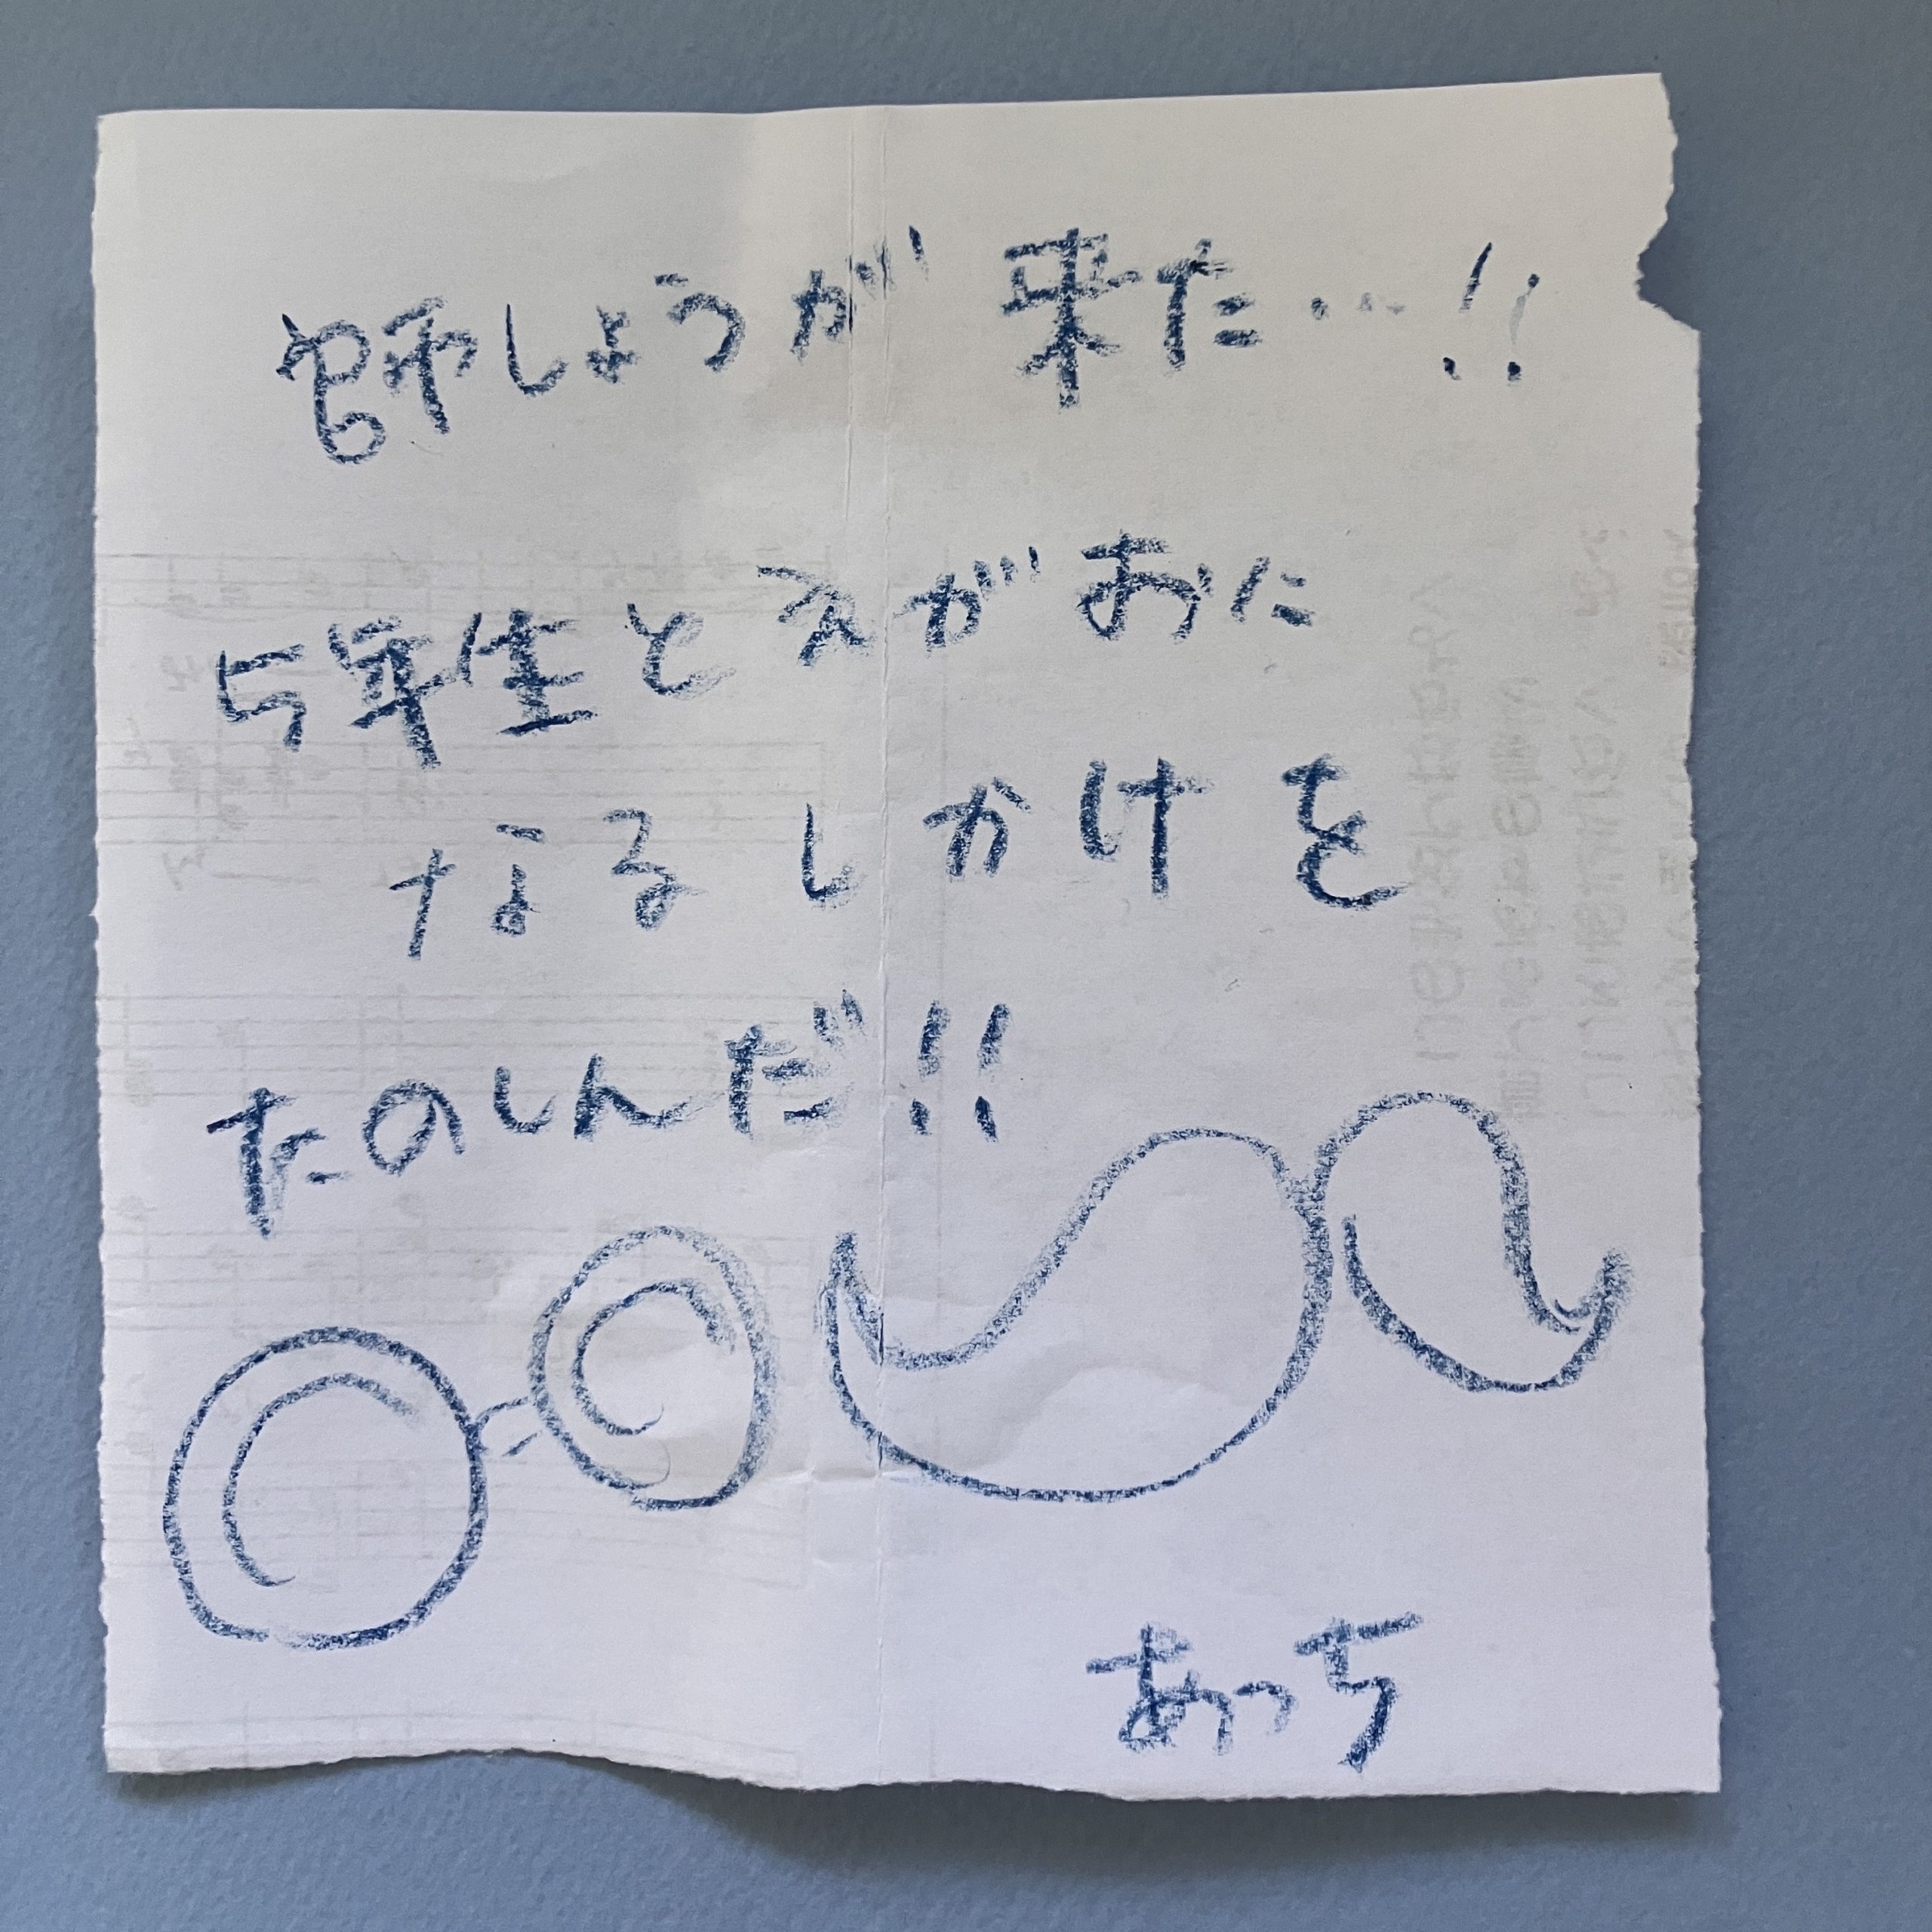 師しょうが来た…!!
5年生とえがおに
なるしかけを
たのしんだ!!
あっち